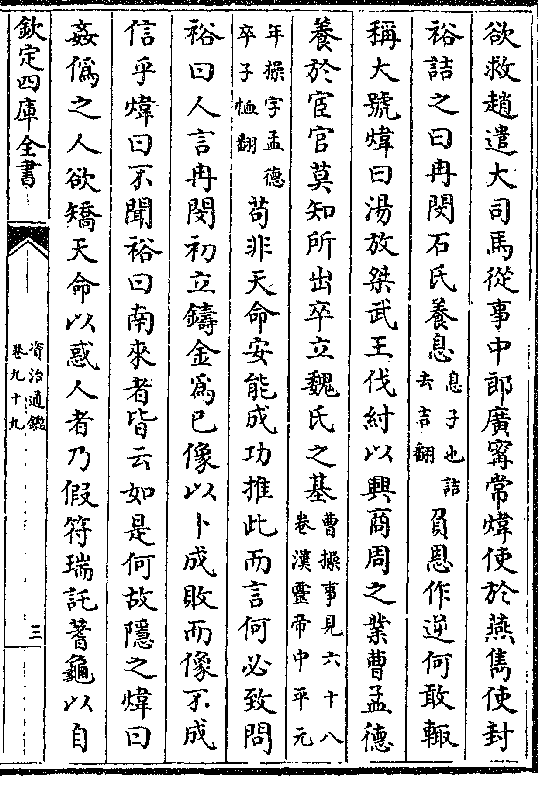 欲救趙遣大司馬從事中郎廣寗常煒使於燕儁使封
裕詰之曰冉閔石氏養息息子也詰去吉翻負恩作逆何敢輒
稱大號煒曰湯放桀武王伐紂以興商周之業曹孟德
養於宦官莫知所出卒立魏氏之基曹操事見六十八卷漢靈帝中平元
年操字孟德卒子恤翻苟非天命安能成功推此而言何必致問
裕曰人言冉閔初立鑄金爲已像以卜成敗而像不成
信乎煒曰不聞裕曰南來者皆云如是何故隱之煒曰
姦僞之人欲矯天命以惑人者乃假符瑞託蓍龜以自
欽定四庫全書
資治通鑑
卷九十九
三